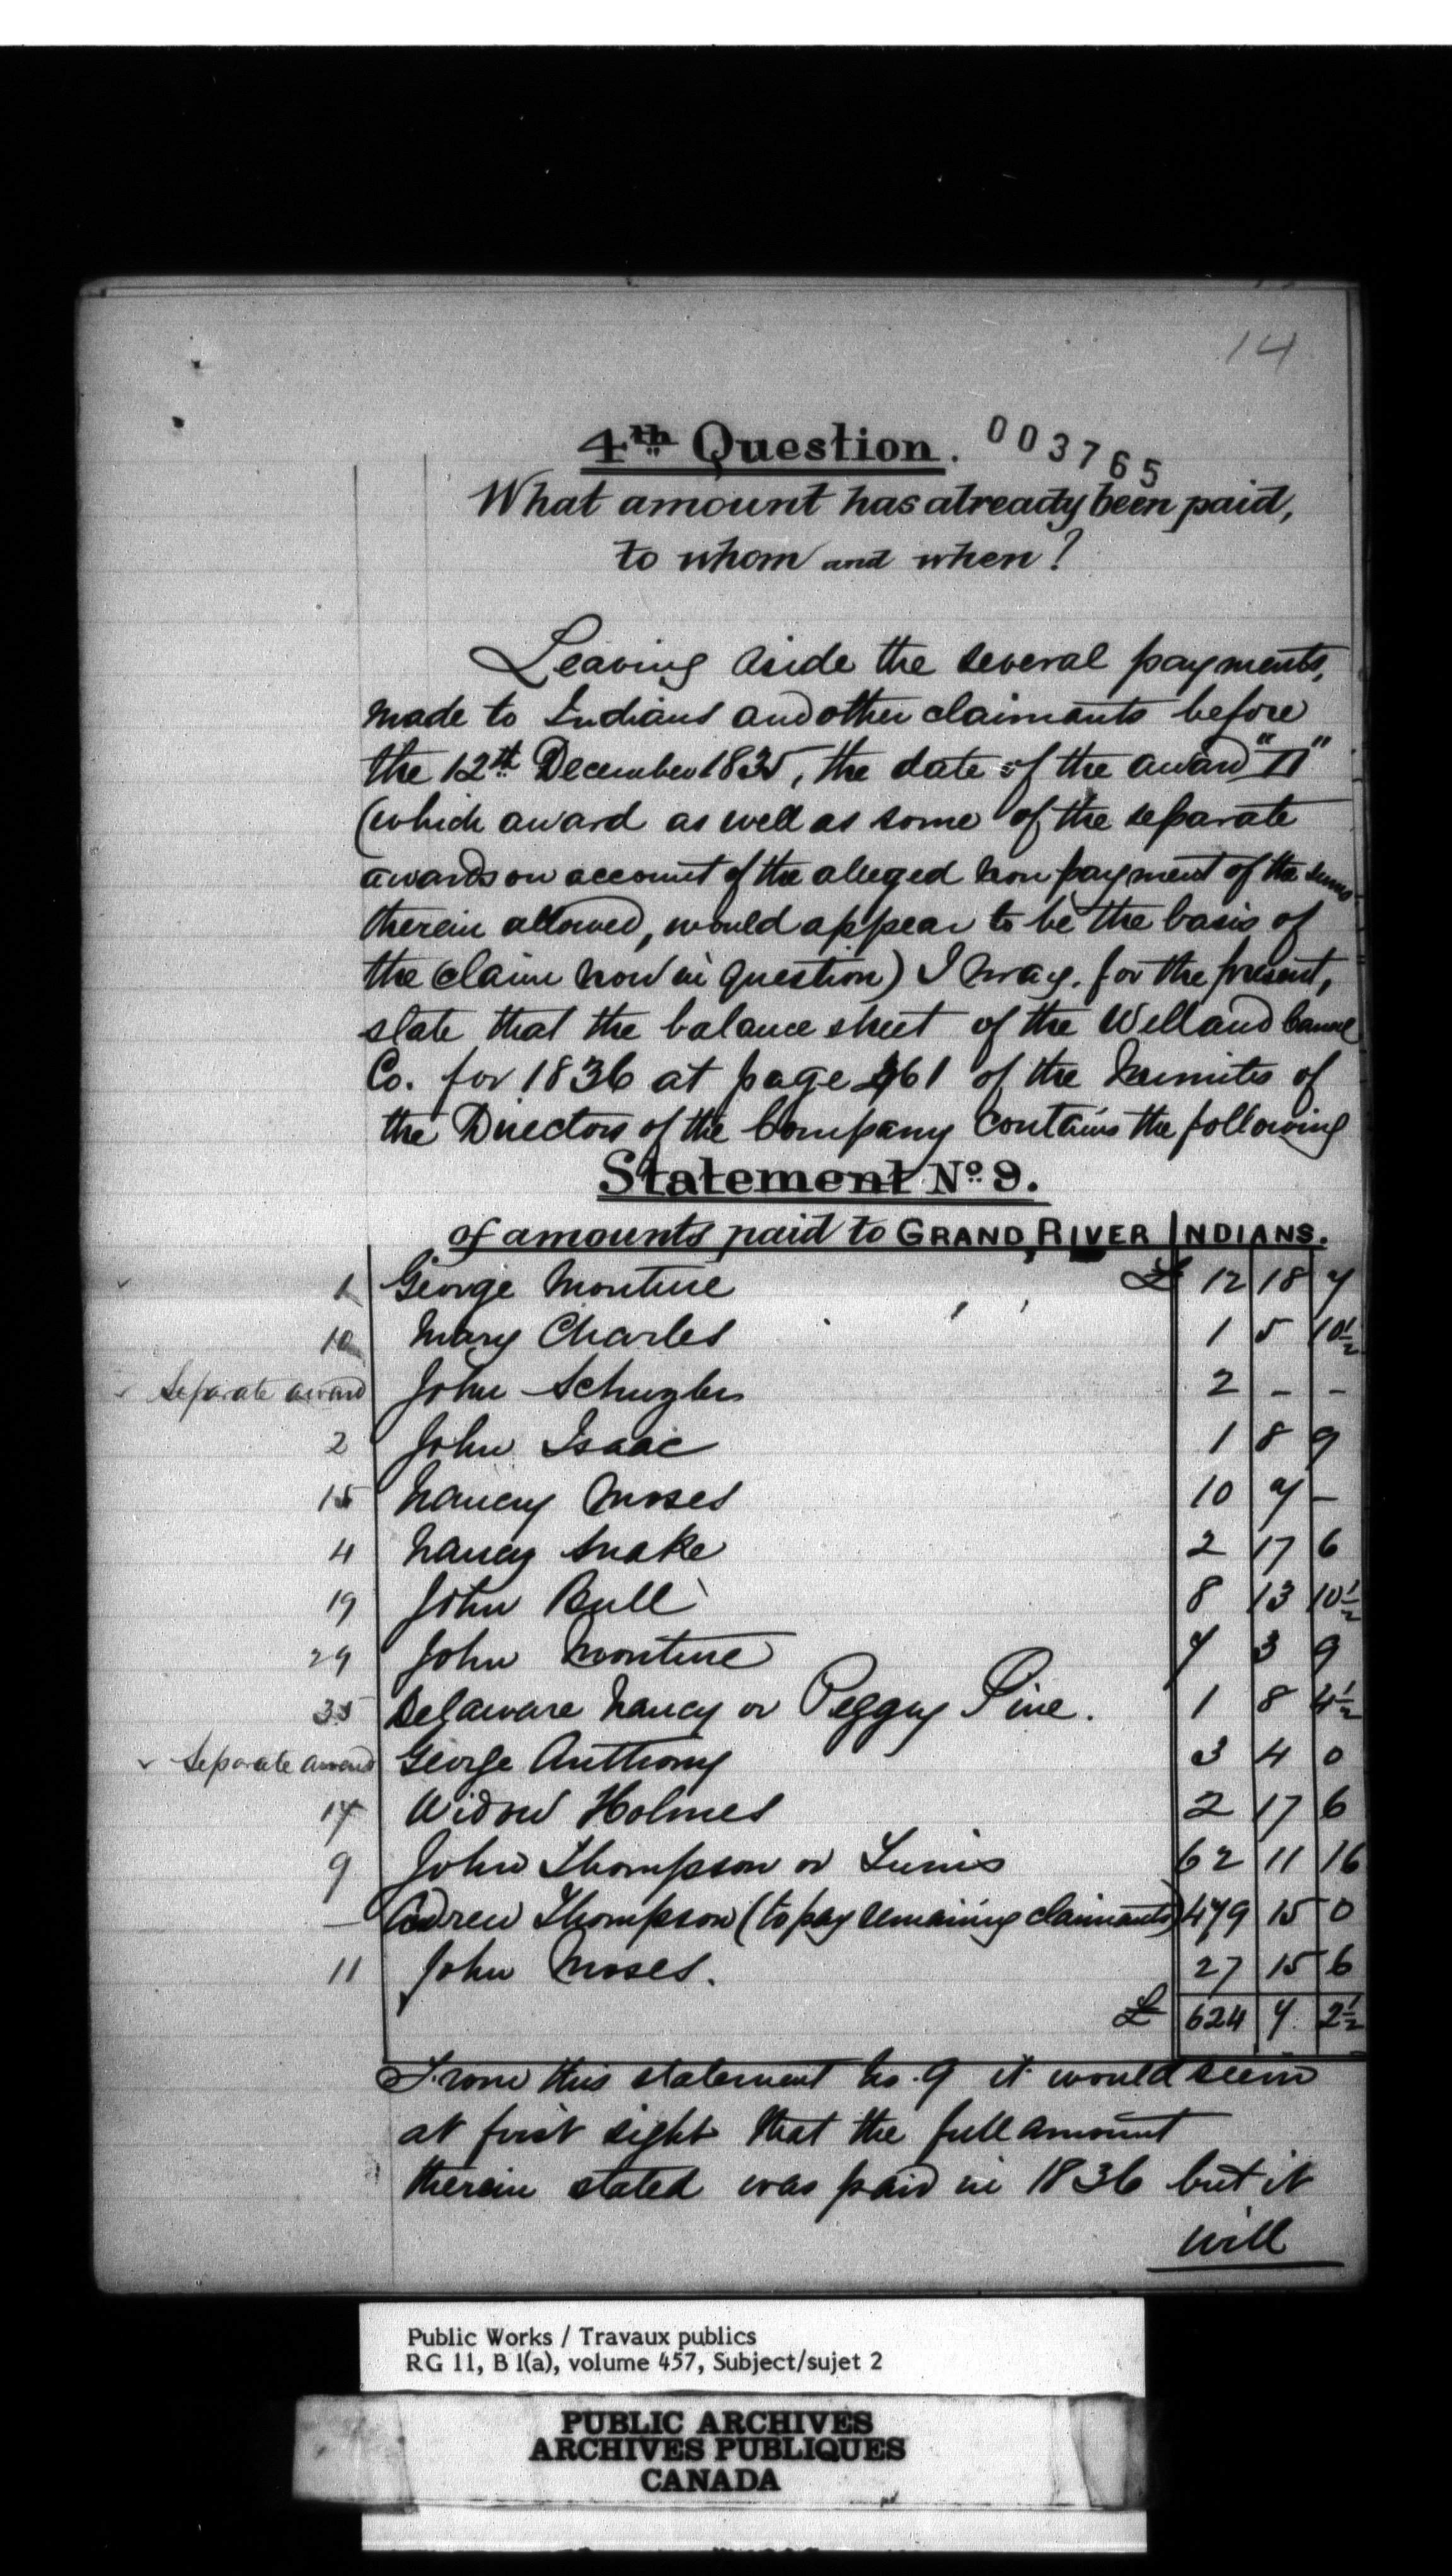 14
4th Question. 003765
What amount has already been paid,
to whom and when?
Leaving aside the several payments,
made to Indians and other claimants before
the 12th December 1835, the date of the award "II"
(which award as well as some of the separate
awards on account of the alleged non payment of the sums
therein allowed, would appear to be the basis of
the claim now in question) I may, for the present,
state that the balance sheet of the Welland Canal
Co. for 1836 at page 461 of the Minutes of
the Directors of the Company contains the following
Statement No. 9.
of amounts paid to GRAND RIVER INDIANS.
1 George Monture £ 12 18 7
10 Mary Charles 1 5 10½
Separate award John Schuyler 2 - -
2 John Isaac 1 8 9
15 Nancy Moses 10 7 -
4 Nancy Snake 2 17 6
19 John Bull 8 13 10½
29 John Monture 7 3 9
35 Delaware Nancy or Peggy Pine. 1 8 4½
Separate award George Anthony 3 4 0
17 Widow Holmes 2 17 6
9 John Thompson or 62 11 16
- Andrew Thompson (to pay remaining claimants) 479 15 0
11 John Moses. 27 15 6
£ 624 7 2½
From this statement No. 9 it would seem
at first sight that the full amount
therein stated was paid in 1836 but it
will
Public Works / Travaux publics
RG 11, B 1(a), volume 457, Subject/sujet 2
PUBLIC ARCHIVES
ARCHIVES PUBLIQUES
CANADA